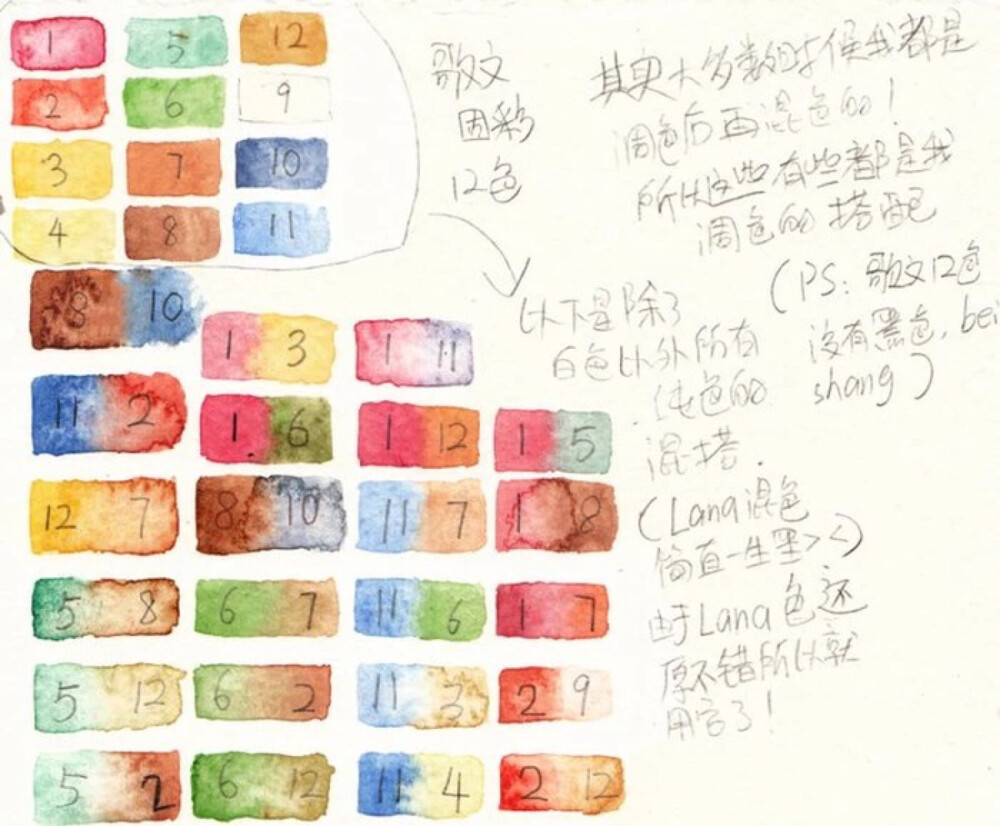 1 5 12
2 6 9
3 7 10
4 8 11
歌文
固彩
12色
其实大多数时候我都是
调色后再混色的！
所以这些有些都是我
调色的搭配
(PS: 歌文12色
没有黑色, bei
shang)
以下是除了
白色以外所有
纯色的
混搭.
(Lana混色
简直一生墨><)
由于Lana色还
原不错所以就
用它了!
8 10
1 3
1 11
11 2
1 6
1 12
1 5
12 7
8 10
11 7
1 8
5 8
6 7
11 6
1 7
5 12
6 2
11 3
2 9
5 2
6 12
11 4
2 12